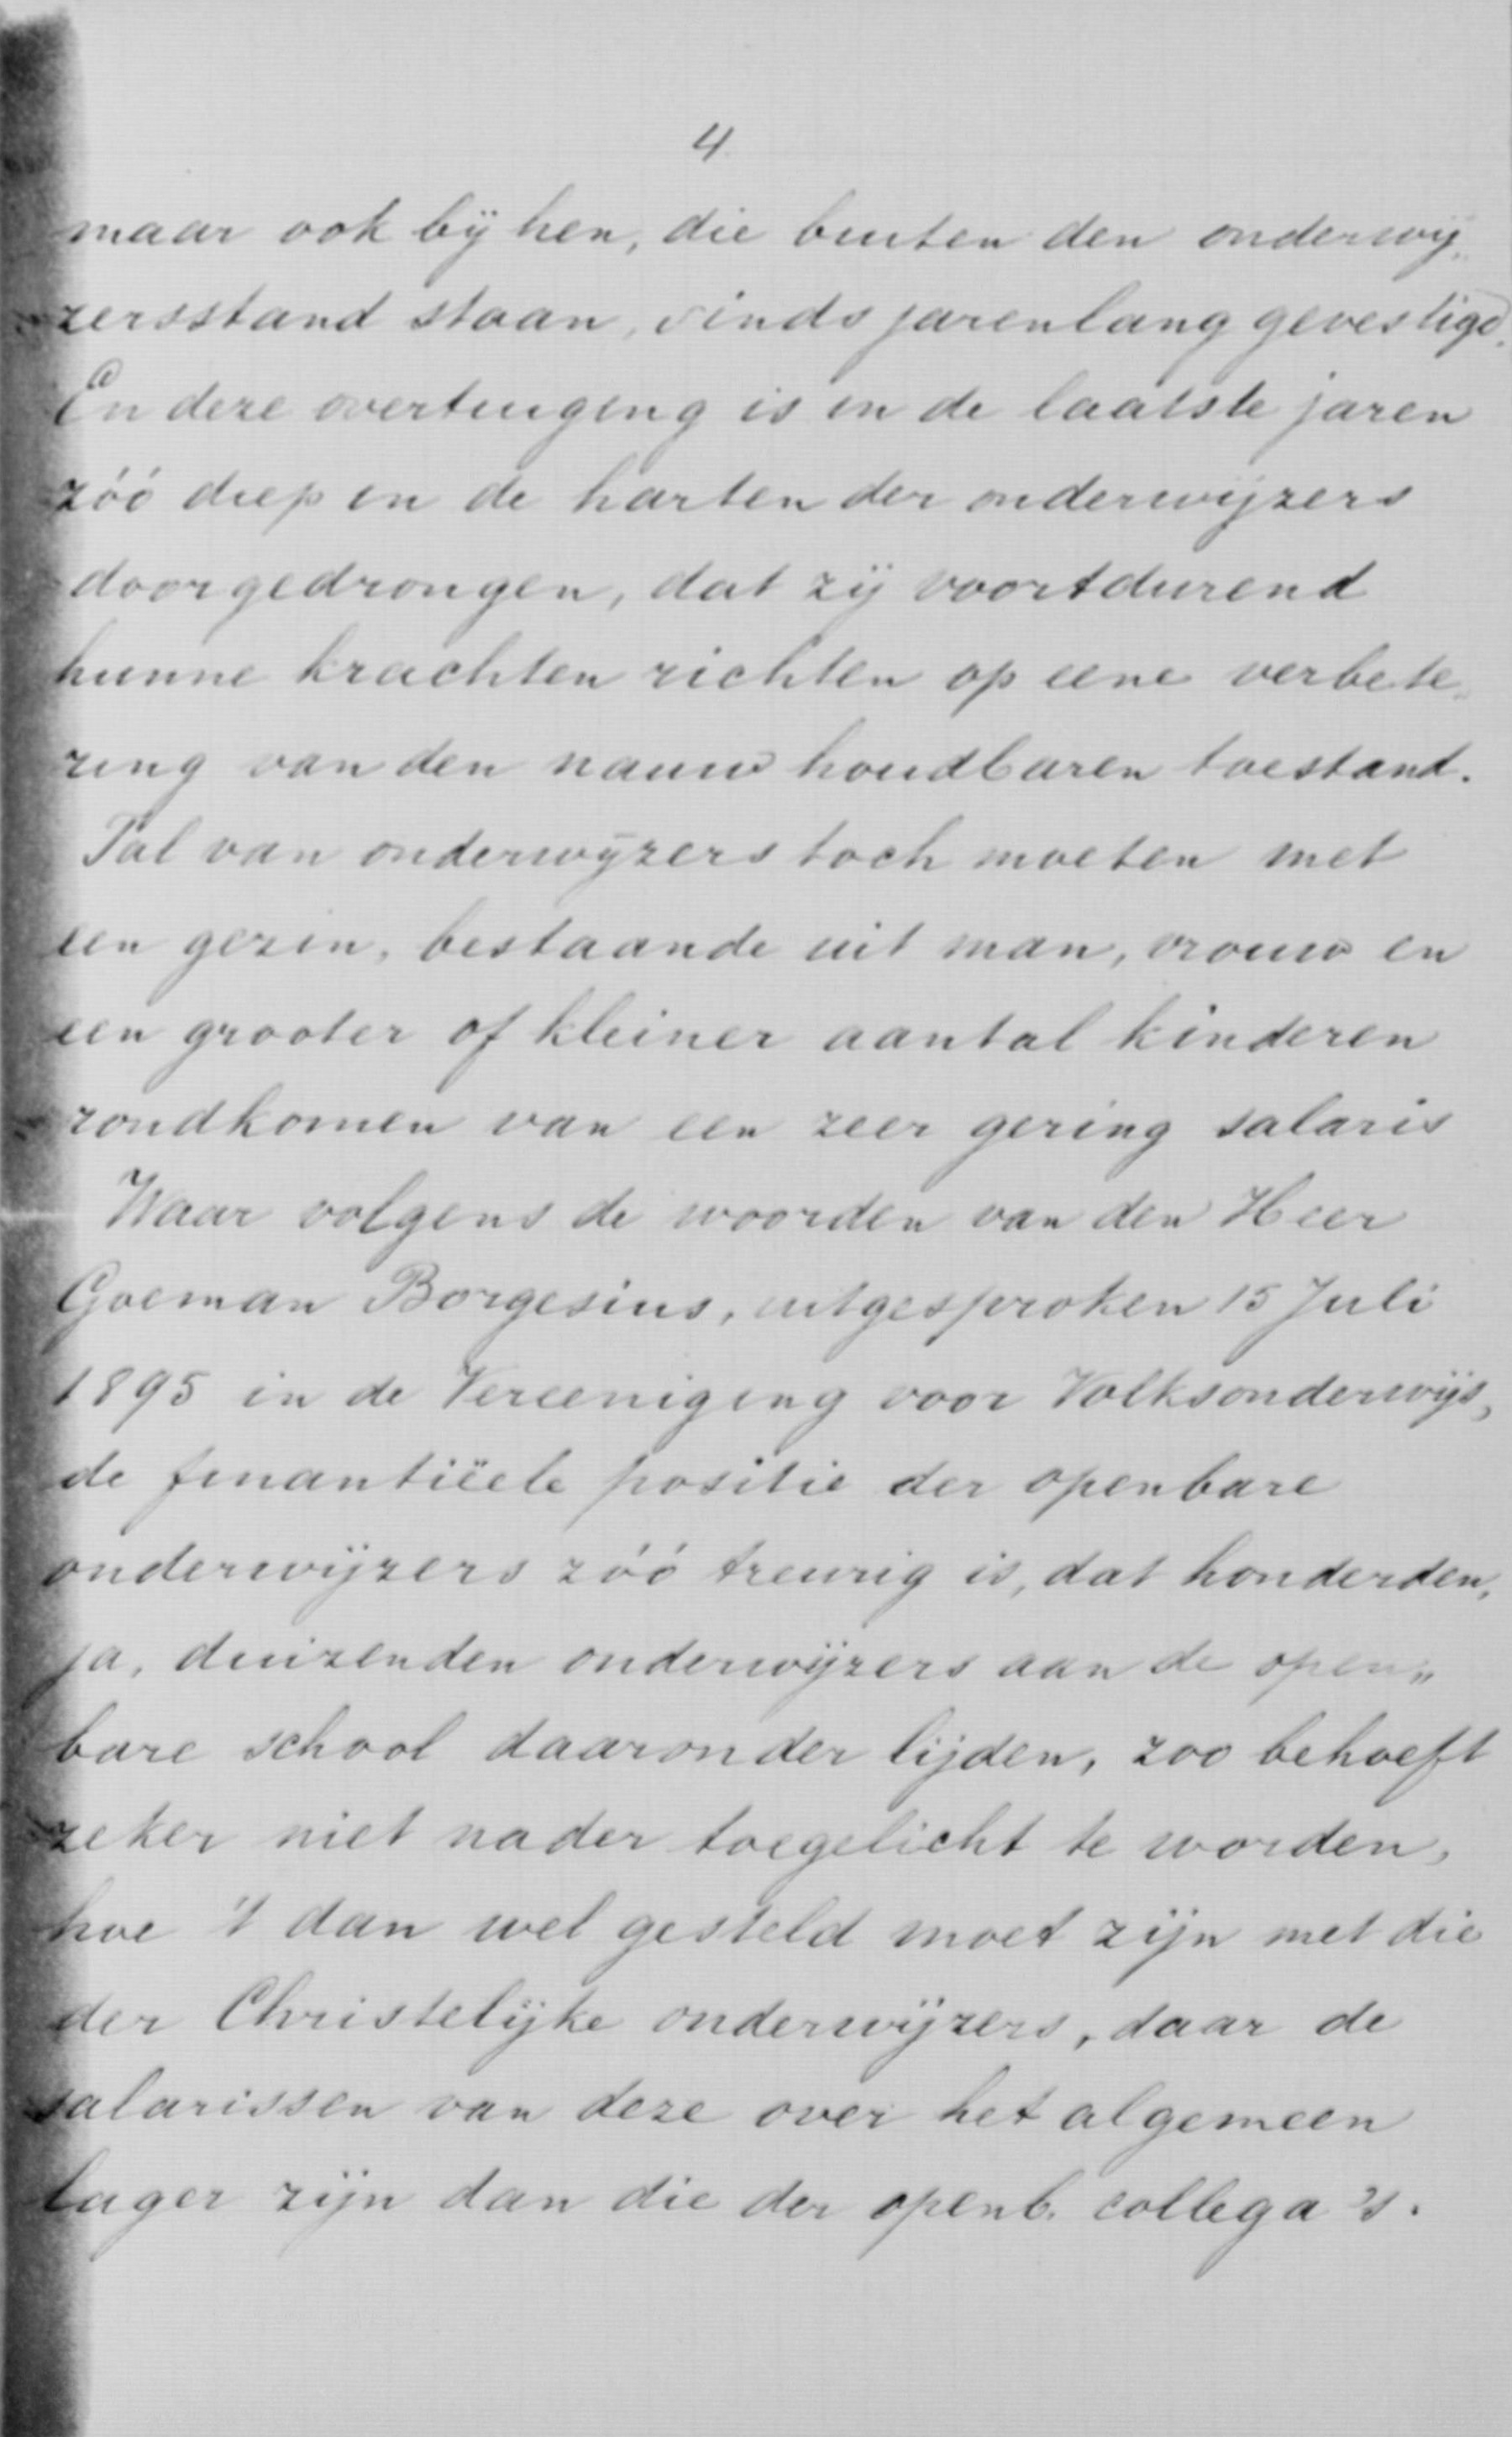 4
maar ook bij hen, die buiten den onderwij„
zersstand staan, sinds jarenlang gevestigd.
En deze overtuiging is in de laatste jaren
zóó diep in de harten der onderwijzers
doorgedrongen, dat zij voortdurend
hunne krachten richten op eene verbete„
ring van den nauw houdbaren toestand.
Tal van onderwijzers toch moeten met
een gezin, bestaande uit man, vrouw en
een grooter of kleiner aantal kinderen
rondkomen van een zeer gering salaris
Waar volgens de woorden van den Heer
Goeman Borgesius, uitgesproken 15 Juli
1895 in de Vereeniging voor Volksonderwijs,
de finantiëele positie der openbare
onderwijzers zóó treurig is, dat honderden,
ja, duizenden onderwijzers aan de open„
bare school daaronder lijden, zoo behoeft
zeker niet nader toegelicht te worden,
hoe 't dan wel gesteld moet zijn met die
der Christelijke onderwijzers, daar de
salarissen van deze over het algemeen
lager zijn dan die der openb. collega's.